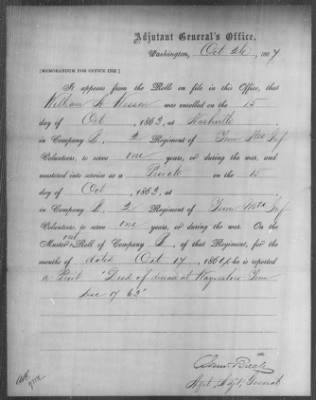 Adjutant General's Office,
Washington, Oct 26, 1867
[MEMORANDUM FOR OFFICE USE.]
It appears from the Rolls on file in this Office, that
William was enrolled on the 15
day of Oct, 1863, at Nashville
in Company L, 2 Regiment of Tenn Mtd Inf
Volunteers, to serve one years, or during the war, and
mustered into service as a Private on the 15
day of Oct, 1863, at
in Company L, 2 Regiment of Tenn Inf
Volunteers, to serve one years, or during the war. On the
Muster out Roll of Company L, of that Regiment, for the
months of dated Oct 17, 1864, he is reported
a Privt "Died of disease at Waynesboro Tenn
Dec of 63"
Asst. Adjt. General